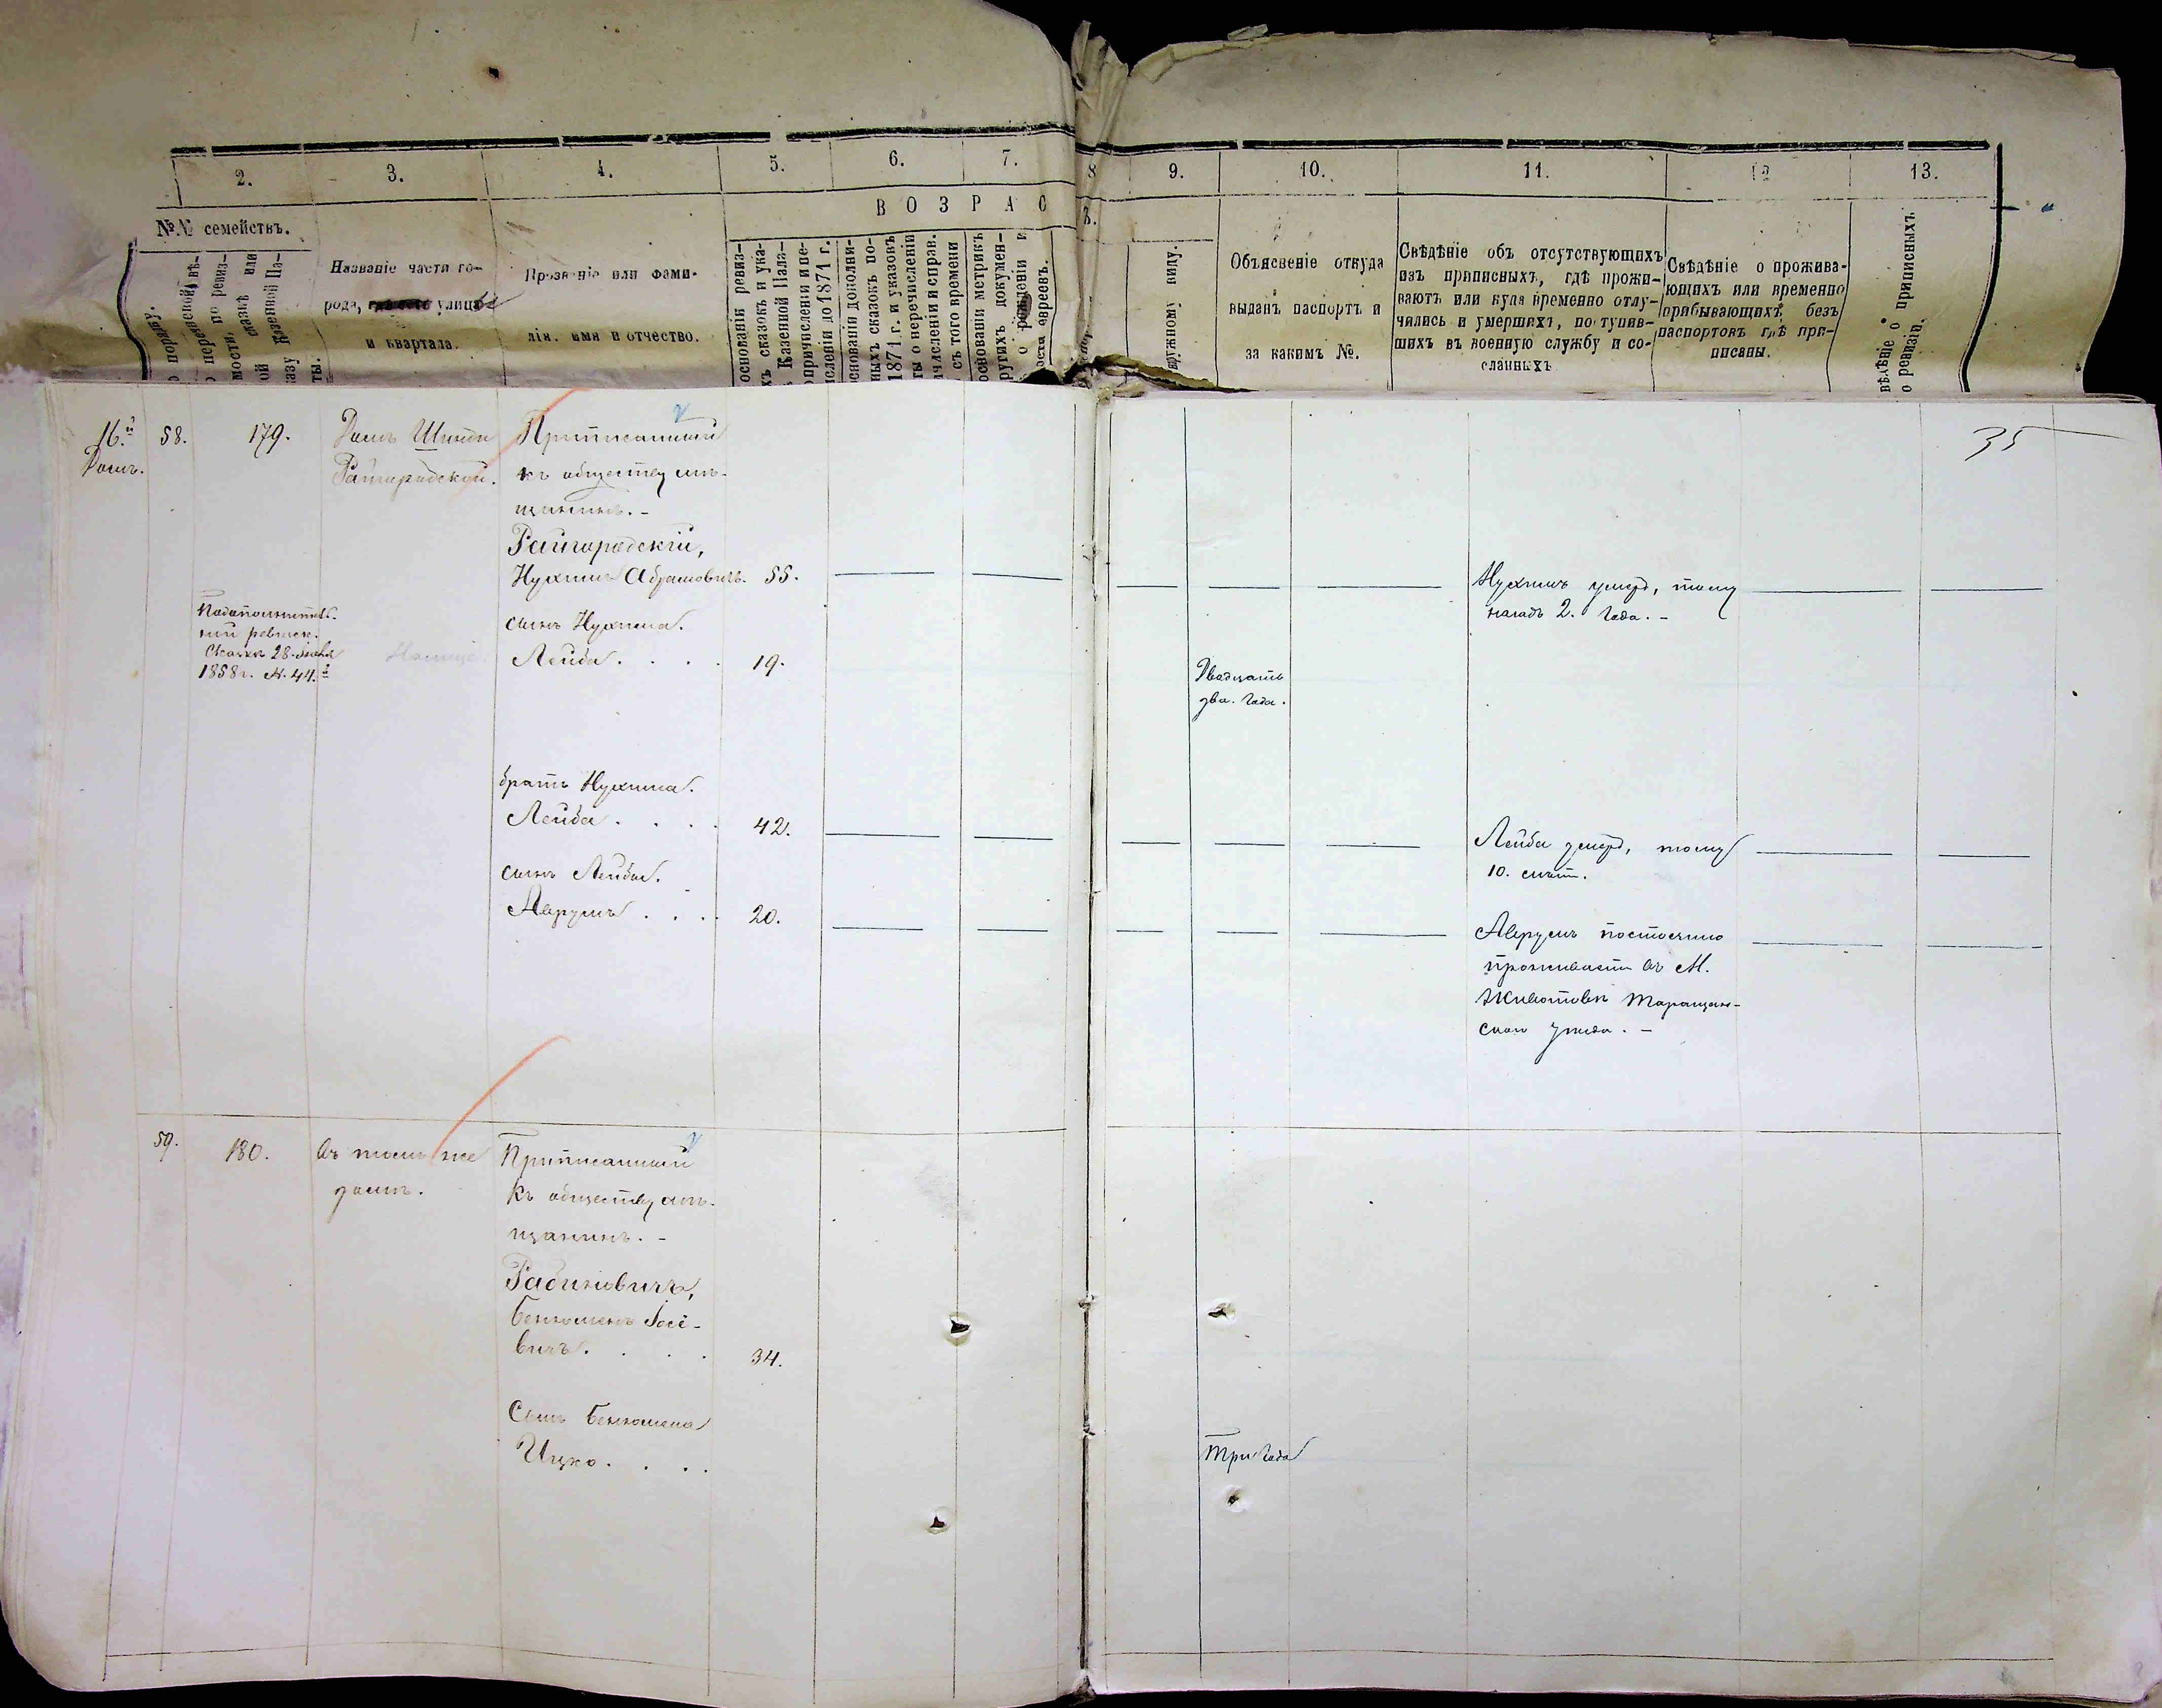 2. 3. 4. 5. 6. 7. 8 9. 10. 11. 12 13.
В О З Р А С
№№ семействъ.
Названіе части го-
рода, улицы
и квартала.
Прозваніе или фами-
лія, имя и отчество.
основаніи ревиз-
хъ сказокъ и ука-
Казенной Пала-
причисленіи и пе-
исленіи до 1871 г.
основаніи дополни-
ныхъ сказокъ по-
1871 г. и указовъ
ты о перечисленіи
ичисленіи и справ.
съ того времени
основаніи метрикъ
ругихъ докумен-
о рожденіи и
евреевъ.
наружному виду.
Объясненіе откуда
выданъ паспортъ и
за какимъ №.
Свѣдѣніе объ отсутствующихъ
изъ приписныхъ, гдѣ прожи-
ваютъ или куда временно отлу-
чились и умершихъ, поступив-
шихъ въ военную службу и со-
сланныхъ
Свѣдѣніе о прожива-
ющихъ или временно
прибывающихъ, безъ
паспортовъ гдѣ при-
писаны.
вѣдѣніе о приписныхъ
о ревизіи.
35
16.й
Домъ.
58.
179.
Домъ Шинди
Райгородской.
Приписанный
къ обществу мѣ-
щанинъ. -
Райгородскій,
Нухимъ Абрамовичъ. 55.
Нухимъ умеръ, тому
назадъ 2. года. -
По дополнител.
ной ревизск.
Сказкѣ 28. Іюня
1858 г. №. 44.й
сынъ Нухима.
Лейба . . . . 19.
Двадцать
два. года.
братъ Нухима.
Лейба . . . . 42.
Лейба умеръ, тому
10. лѣтъ.
сынъ Лейбы.
Аврумъ . . . 20.
Аврумъ постоянно
проживаетъ въ М.
Животовкѣ Таращан-
скаго уѣзда. -
59.
180.
въ томъ же
домѣ.
Приписанный
къ обществу мѣ-
щанинъ. -
Рабиновичъ,
Беньоменъ Іосі-
вичъ. . . . 34.
Сынъ Беньомена
Ицко. . . .
Три года